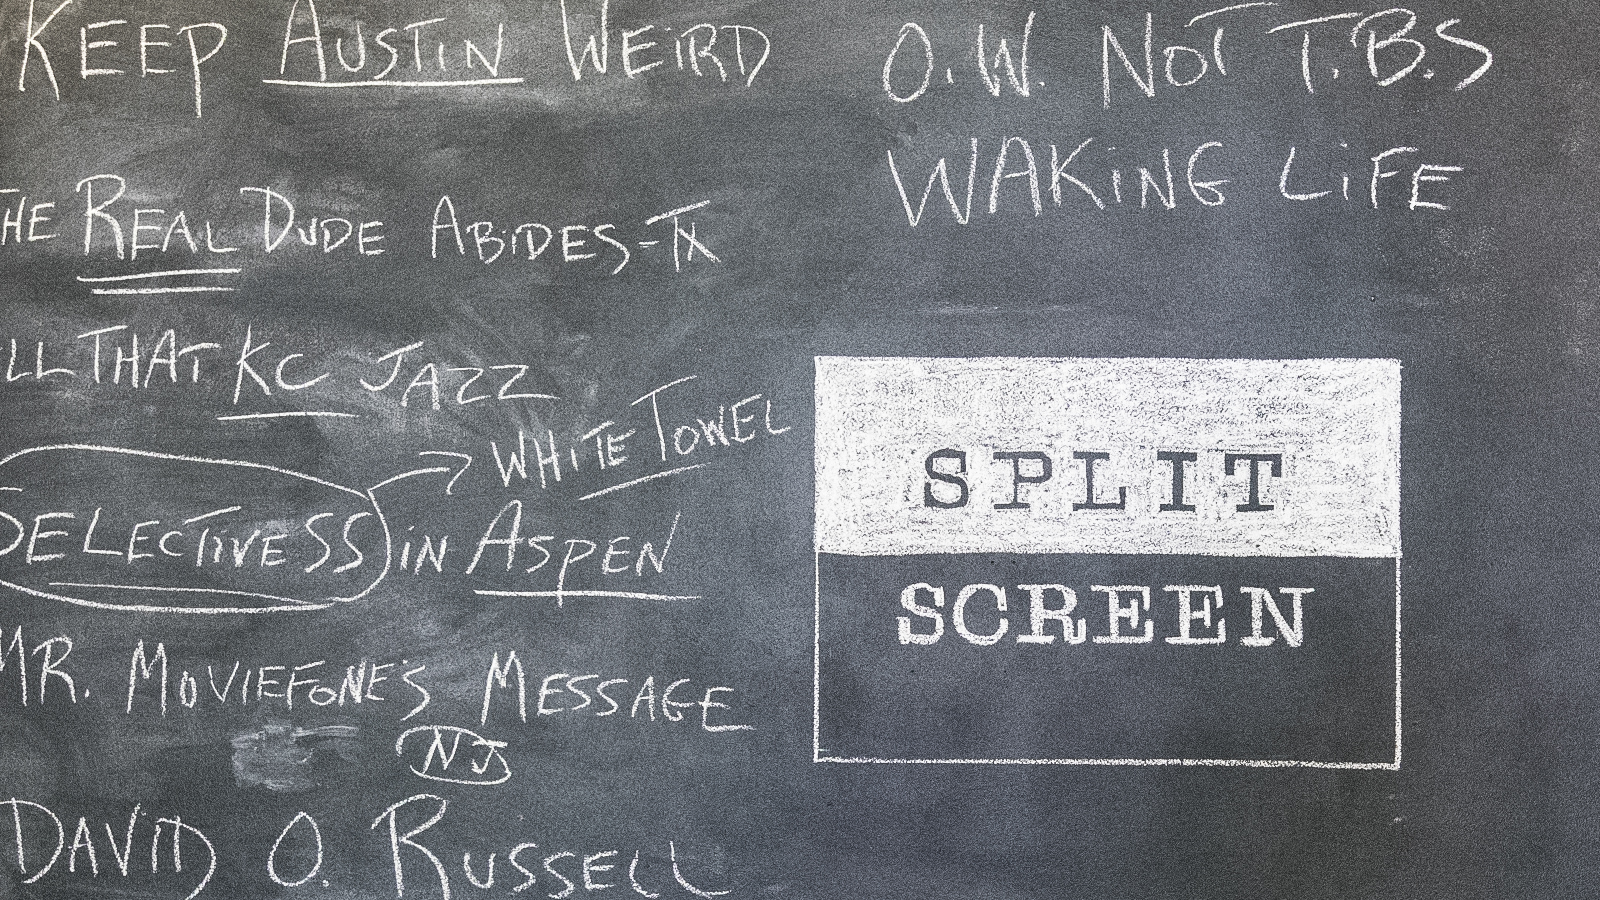 KEEP AUSTIN WEIRD
HE REAL DUDE ABIDES-TX
LL THAT KC JAZZ
WHITE TOWEL
SELECTIVESS IN ASPEN
MR. MOVIEFONE'S MESSAGE
NJ
DAVID O. RUSSELL
O.W. NOT T.B.S
WAKING LIFE
SPLIT
SCREEN